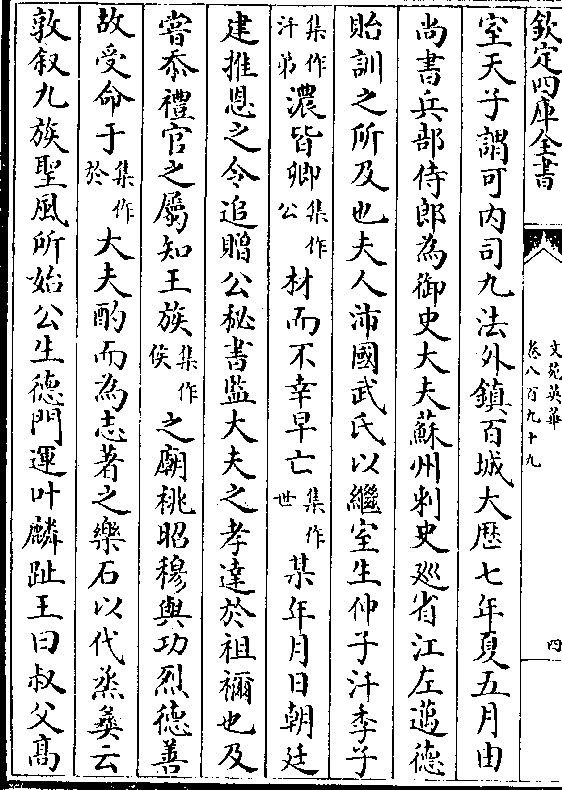 欽定四庫全書
文苑英華
卷八百九十九
四
室天子謂可内司九法外鎮百城大厯七年夏五月由
尚書兵部侍郎為御史大夫蘇州刺史廵省江左邁德
貽訓之所及也夫人沛國武氏以繼室生仲子汧季子
集作汧弟濃皆卿集作公材而不幸早亡集作世某年月日朝廷
建推恩之令追贈公秘書監大夫之孝達於祖禰也及
嘗忝禮官之屬知王族集作侯之廟祧昭穆與功烈德善
故受命于集作於大夫酌而為志著之樂石以代烝彝云
敦叙九族聖風所始公生德門運叶麟趾王曰叔父髙